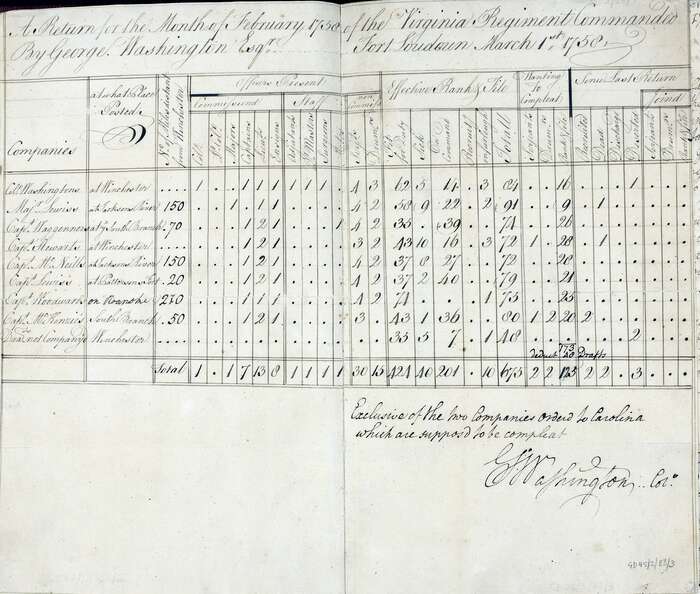 A Return for the Month of February 1758 of the Virginia Regiment Commanded
By George Washington Esqr. Fort Loudoun March 1st 1758
Companies
at what Place Posted
No. of Miles distant from Winchester
Officers Present
Commissiond
Staff
non Commiss'd
Effective Rank & File
Wanting to Compleat
Since Last Return
Joind
Coll Majors Captains Lieuts Ensigns Adjutants Serjts Drumrs Fit for Duty Sick On Command Recruitg on furlough Totall Serjeants Drummrs Rank & File Dead Discharged Deserted Serjeants Drummrs
Coll Washingtons at Winchester . . . 1 . . 1 1 1 1 1 1 . 4 3 62 5 14 . 3 84 . . 16 . . . 1 . .
Majr Lewiss at Jacksons River 150 . . 1 . 1 1 . . . . 4 2 58 9 22 . 2 91 . . 9 . 1 . . . .
Capt Waggenners at ye South Branch 70 . . . 1 2 1 . . . 1 4 2 35 . 39 . . 74 . . 26
Capt Stewarts at Winchester . . . 1 2 1 3 2 43 10 16 . 3 72 1 . 28 . 1
Capt McNeills at Jacksons River 150 . . . 1 2 1 4 2 37 8 27 . . 72 . . 28
Capt Lewiss at Pattersons Fort 20 . . . 1 2 1 4 2 37 2 40 . . 79 . . 21
Capt Woodwards on Roanoke 270 . . . 1 1 1 4 2 74 . . . 1 75 . . 25
Capt McKenzies South Branch 50 . . . 1 2 1 3 . 43 1 36 . . 80 1 2 20 2
not Company'd Winchester 35 5 7 . 1 48 . . . . . . 2
173
deduct 20 Drafts
Total 1 . 1 7 13 8 1 1 1 1 30 15 424 40 201 . 10 675 2 2 153 2 2 . 3
Exclusive of the two Companies orderd to Carolina
which are supposd to be compleat
GWashington Colo.
GD45/2/89/3